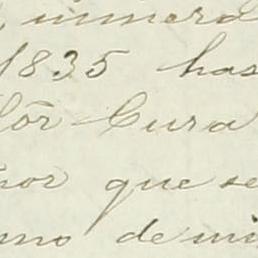 numera
1835 has
lõr Cura
nor que se
mo de mi